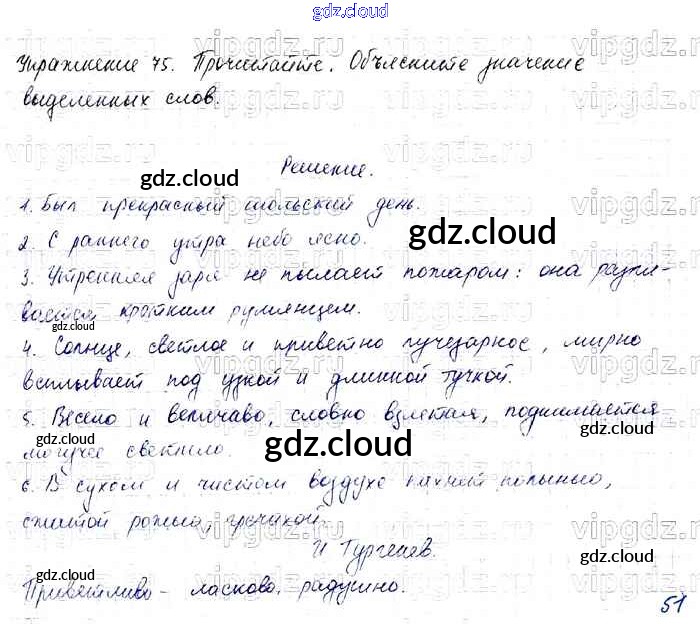 gdz.cloud
Упражнение 75. Прочитайте. Объясните значение
выделенных слов.
Решение.
gdz.cloud
1. Был прекрасный июльский день.
2. С раннего утра небо ясно.
gdz.cloud
3. Утренняя заря не пылает пожаром: она разли-
вается кротким румянцем.
gdz.cloud
4. Солнце, светлое и приветно лучезарное, мирно
всплывает под узкой и длинной тучкой.
5. Весело и величаво, словно взлетая, поднимается
gdz.cloud gdz.cloud gdz.cloud
могучее светило.
6. В сухом и чистом воздухе пахнет полынью,
сжатой рожью, гречихой.
И Тургенев.
gdz.cloud gdz.cloud
Приветливо - ласково, радушно.
51